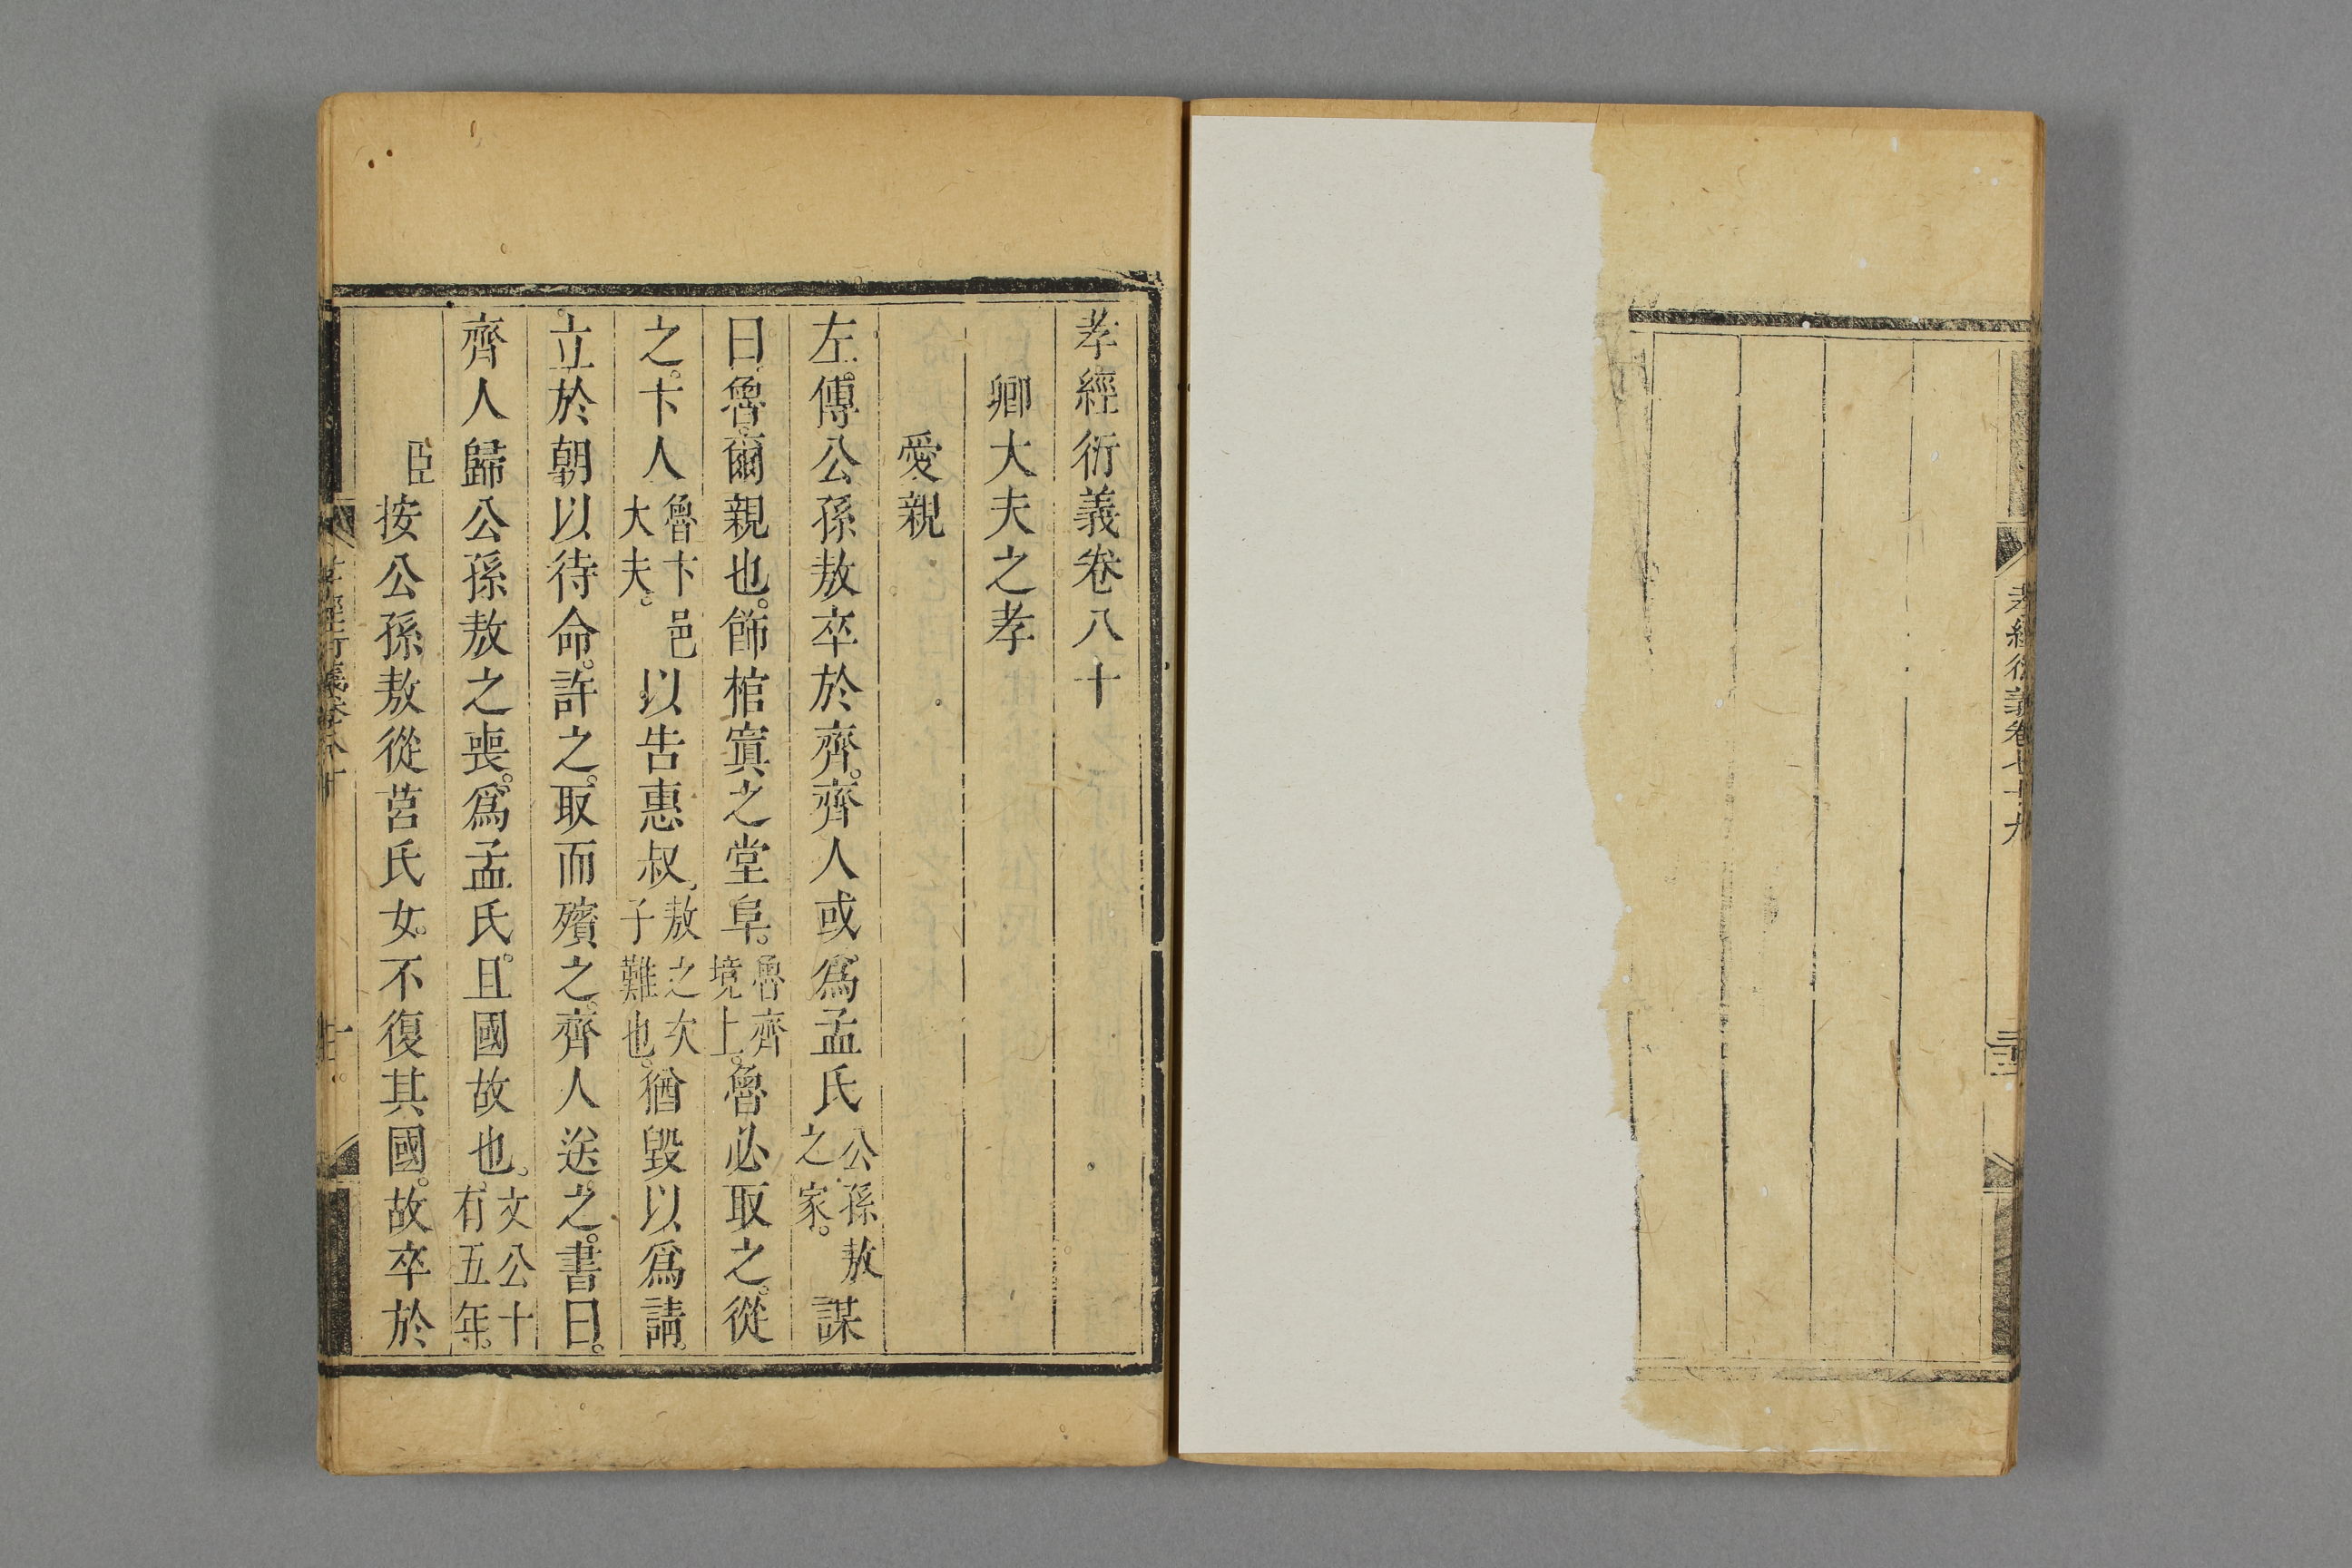 孝經衍義卷七十九
孝經衍義卷八十
卿大夫之孝
愛親
左傳公孫敖卒於齊。齊人或爲孟氏公孫敖之家。謀
曰魯爾親也。飾棺寘之堂阜。魯齊境上。魯必取之。從
之。卞人魯卞邑大夫。以告惠叔。敖之次子難也。猶毀以爲請。
立於朝以待命。許之。取而殯之。齊人送之。書曰。
齊人歸公孫敖之喪。爲孟氏。且國故也。文公十有五年。
臣按公孫敖從莒氏女。不復其國。故卒於
孝經衍義卷八十
一